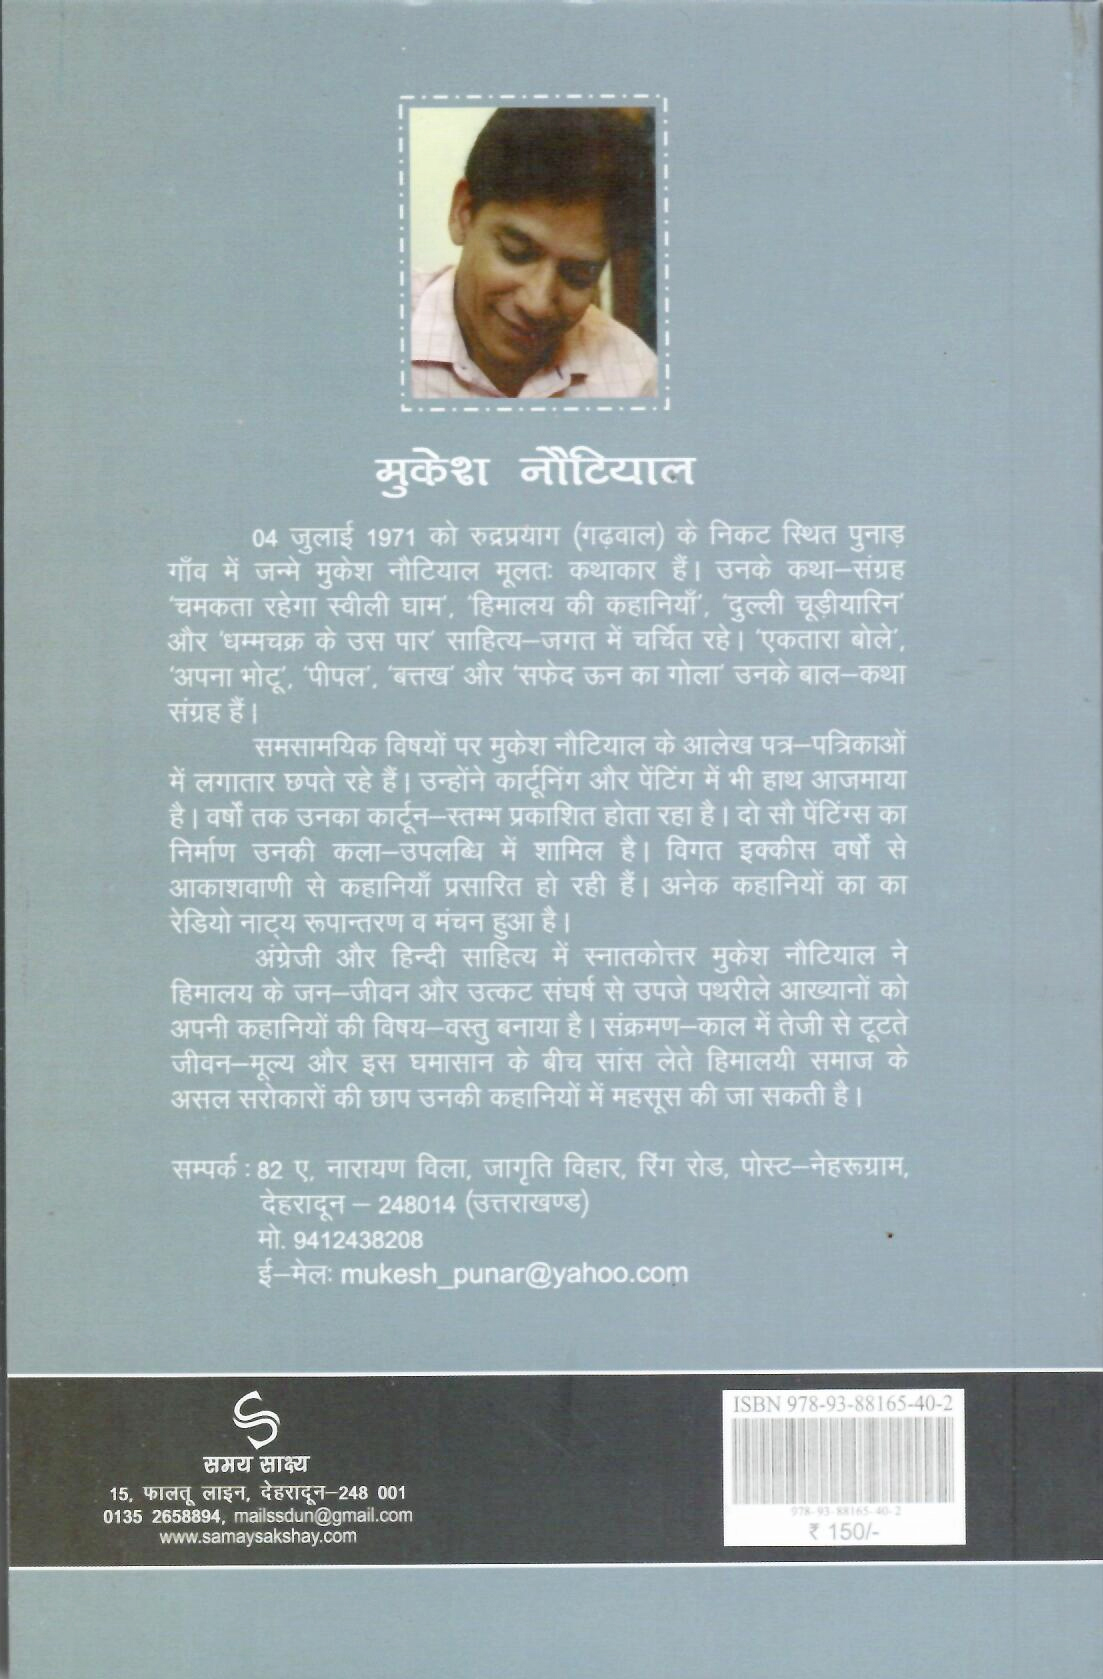 मुकेश नौटियाल
04 जुलाई 1971 को रुद्रप्रयाग (गढ़वाल) के निकट स्थित पुनाड़
गाँव में जन्मे मुकेश नौटियाल मूलतः कथाकार हैं। उनके कथा–संग्रह
'चमकता रहेगा स्वीली घाम', 'हिमालय की कहानियाँ', 'दुल्ली चूड़ीयारिन'
और 'धम्मचक्र के उस पार' साहित्य–जगत में चर्चित रहे। 'एकतारा बोले',
'अपना भोटू', 'पीपल', 'बत्तख' और 'सफेद ऊन का गोला' उनके बाल–कथा
संग्रह हैं।
समसामयिक विषयों पर मुकेश नौटियाल के आलेख पत्र–पत्रिकाओं
में लगातार छपते रहे हैं। उन्होंने कार्टूनिंग और पेंटिंग में भी हाथ आजमाया
है। वर्षों तक उनका कार्टून–स्तम्भ प्रकाशित होता रहा है। दो सौ पेंटिंग्स का
निर्माण उनकी कला–उपलब्धि में शामिल है। विगत इक्कीस वर्षों से
आकाशवाणी से कहानियाँ प्रसारित हो रही हैं। अनेक कहानियों का का
रेडियो नाट्य रूपान्तरण व मंचन हुआ है।
अंग्रेजी और हिन्दी साहित्य में स्नातकोत्तर मुकेश नौटियाल ने
हिमालय के जन–जीवन और उत्कट संघर्ष से उपजे पथरीले आख्यानों को
अपनी कहानियों की विषय–वस्तु बनाया है। संक्रमण–काल में तेजी से टूटते
जीवन–मूल्य और इस घमासान के बीच सांस लेते हिमालयी समाज के
असल सरोकारों की छाप उनकी कहानियों में महसूस की जा सकती है।
सम्पर्क : 82 ए, नारायण विला, जागृति विहार, रिंग रोड, पोस्ट–नेहरूग्राम,
देहरादून – 248014 (उत्तराखण्ड)
मो. 9412438208
ई–मेलः mukesh_punar@yahoo.com
समय साक्ष्य
15, फालतू लाइन, देहरादून–248 001
0135 2658894, mailssdun@gmail.com
www.samaysakshay.com
ISBN 978-93-88165-40-2
978-93-88165-40-2
₹ 150/-